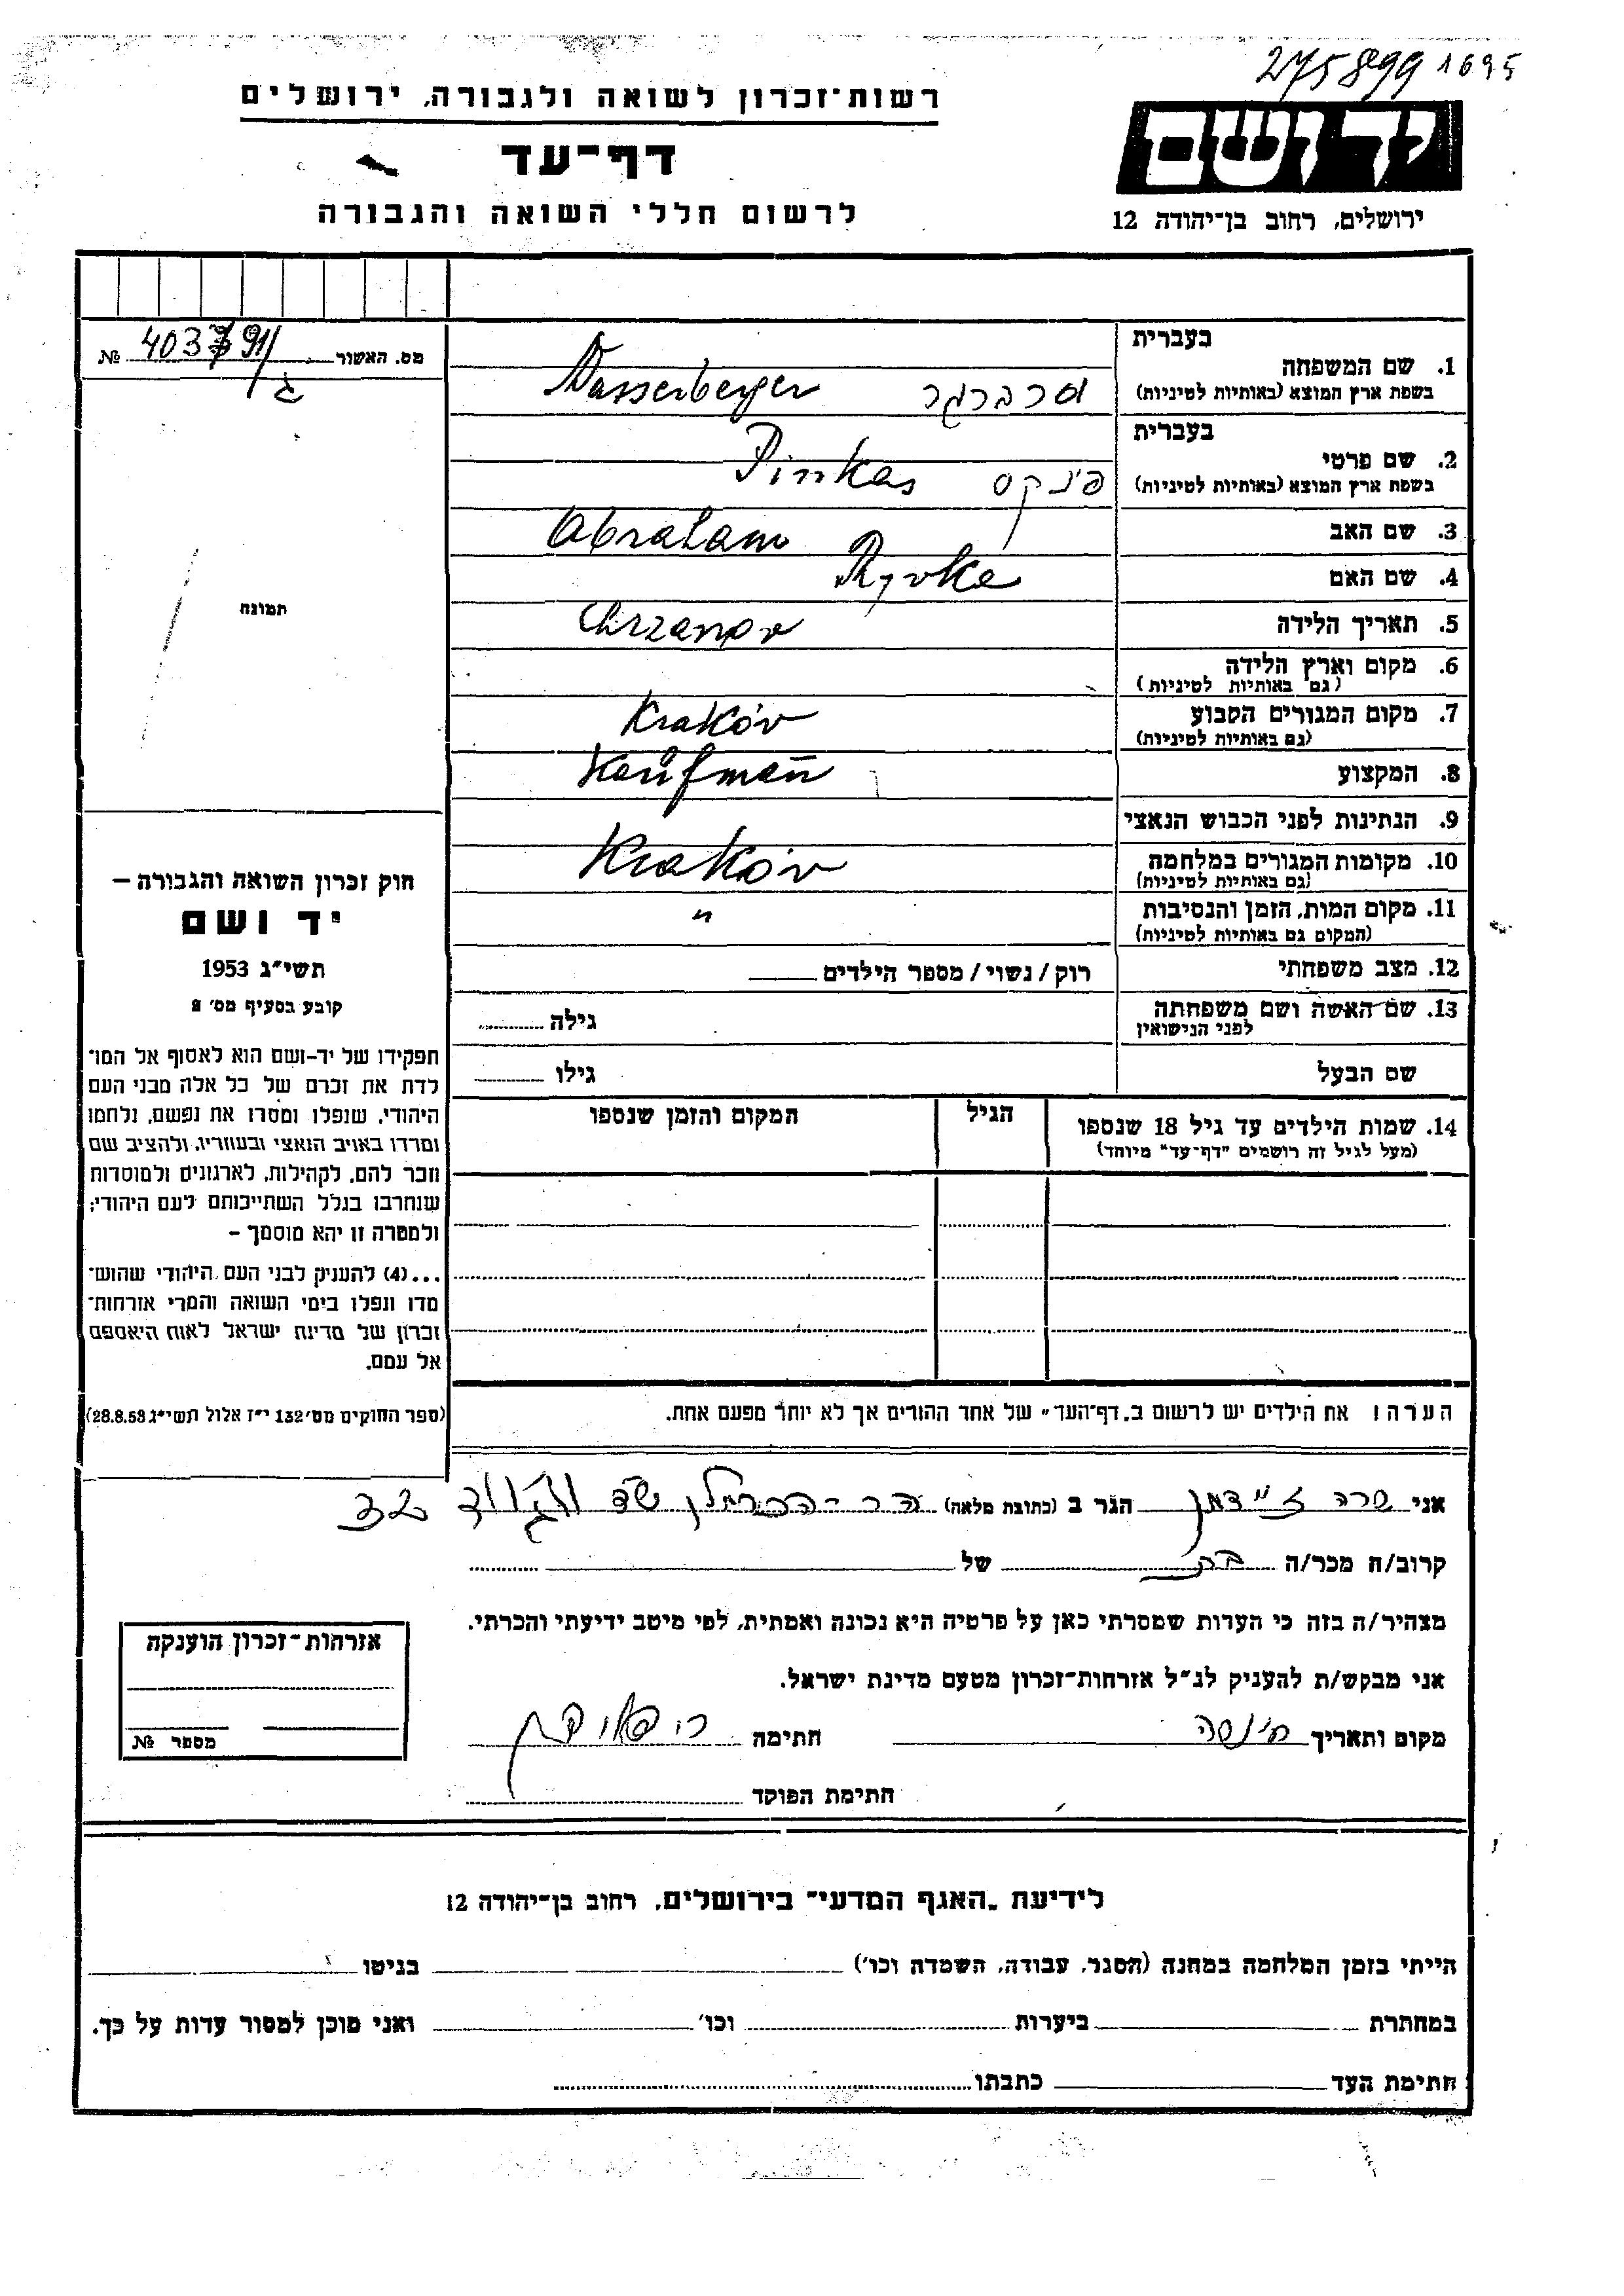 275899 1695
רשות-זכרון לשואה ולגבורה, ירושלים
יד ושם
דף-עד
לרשום חללי השואה והגבורה
ירושלים, רחוב בן-יהודה 12
מס. האשור №
בעברית
1. שם המשפחה
בשפת ארץ המוצא (באותיות לטיניות)
Wasserberger
בעברית
2. שם פרטי
בשפת ארץ המוצא (באותיות לטיניות)
פינקס Pinkas
3. שם האב Abraham
4. שם האם Ryvke
5. תאריך הלידה Chrzanov
6. מקום וארץ הלידה
(גם באותיות לטיניות)
7. מקום המגורים הקבוע
(גם באותיות לטיניות)
Kraków
8. המקצוע Kaufman
9. הנתינות לפני הכבוש הנאצי
10. מקומות המגורים במלחמה
(גם באותיות לטיניות)
Kraków
11. מקום המות, הזמן והנסיבות
(המקום גם באותיות לטיניות)
"
12. מצב משפחתי רוק / נשוי / מספר הילדים
13. שם האשה ושם משפחתה
לפני הנישואין
גילה
שם הבעל גילו
14. שמות הילדים עד גיל 18 שנספו
(מעל לגיל זה רושמים "דף-עד" מיוחד)
הגיל
המקום והזמן שנספו
הערה: את הילדים יש לרשום ב„דף-העד" של אחד ההורים אך לא יותר מפעם אחת.
תמונה
חוק זכרון השואה והגבורה –
יד ושם
תשי"ג 1953
קובע בסעיף מס' 2
תפקידו של יד-ושם הוא לאסוף אל המו-
לדת את זכרם של כל אלה מבני העם
היהודי, שנפלו ומסרו את נפשם, נלחמו
ומרדו באויב הנאצי ובעוזריו, ולהציב שם
וזכר להם, לקהילות, לארגונים ולמוסדות
שנחרבו בגלל השתייכותם לעם היהודי;
ולמטרה זו יהא מוסמך –
...(4) להעניק לבני העם היהודי שהוש-
מדו ונפלו בימי השואה והמרי אזרחות-
זכרון של מדינת ישראל לאות היאספם
אל עמם.
(ספר החוקים מס' 132 י"ז אלול תשי"ג 28.8.53)
אני שרה זיידמן הגר ב (כתובת מלאה) הר-הכרמל
קרוב/ה מכר/ה בת של
מצהיר/ה בזה כי העדות שמסרתי כאן על פרטיה היא נכונה ואמתית, לפי מיטב ידיעתי והכרתי.
אני מבקש/ת להעניק לנ"ל אזרחות-זכרון מטעם מדינת ישראל.
מקום ותאריך חתימה
חתימת הפוקד
אזרחות-זכרון הוענקה
מספר №
לידיעת „האגף המדעי" בירושלים, רחוב בן-יהודה 12
הייתי בזמן המלחמה במחנה (הסגר, עבודה, השמדה וכו') בגיטו
במחתרת ביערות וכו' ואני מוכן למסור עדות על כך.
חתימת העד כתבתו